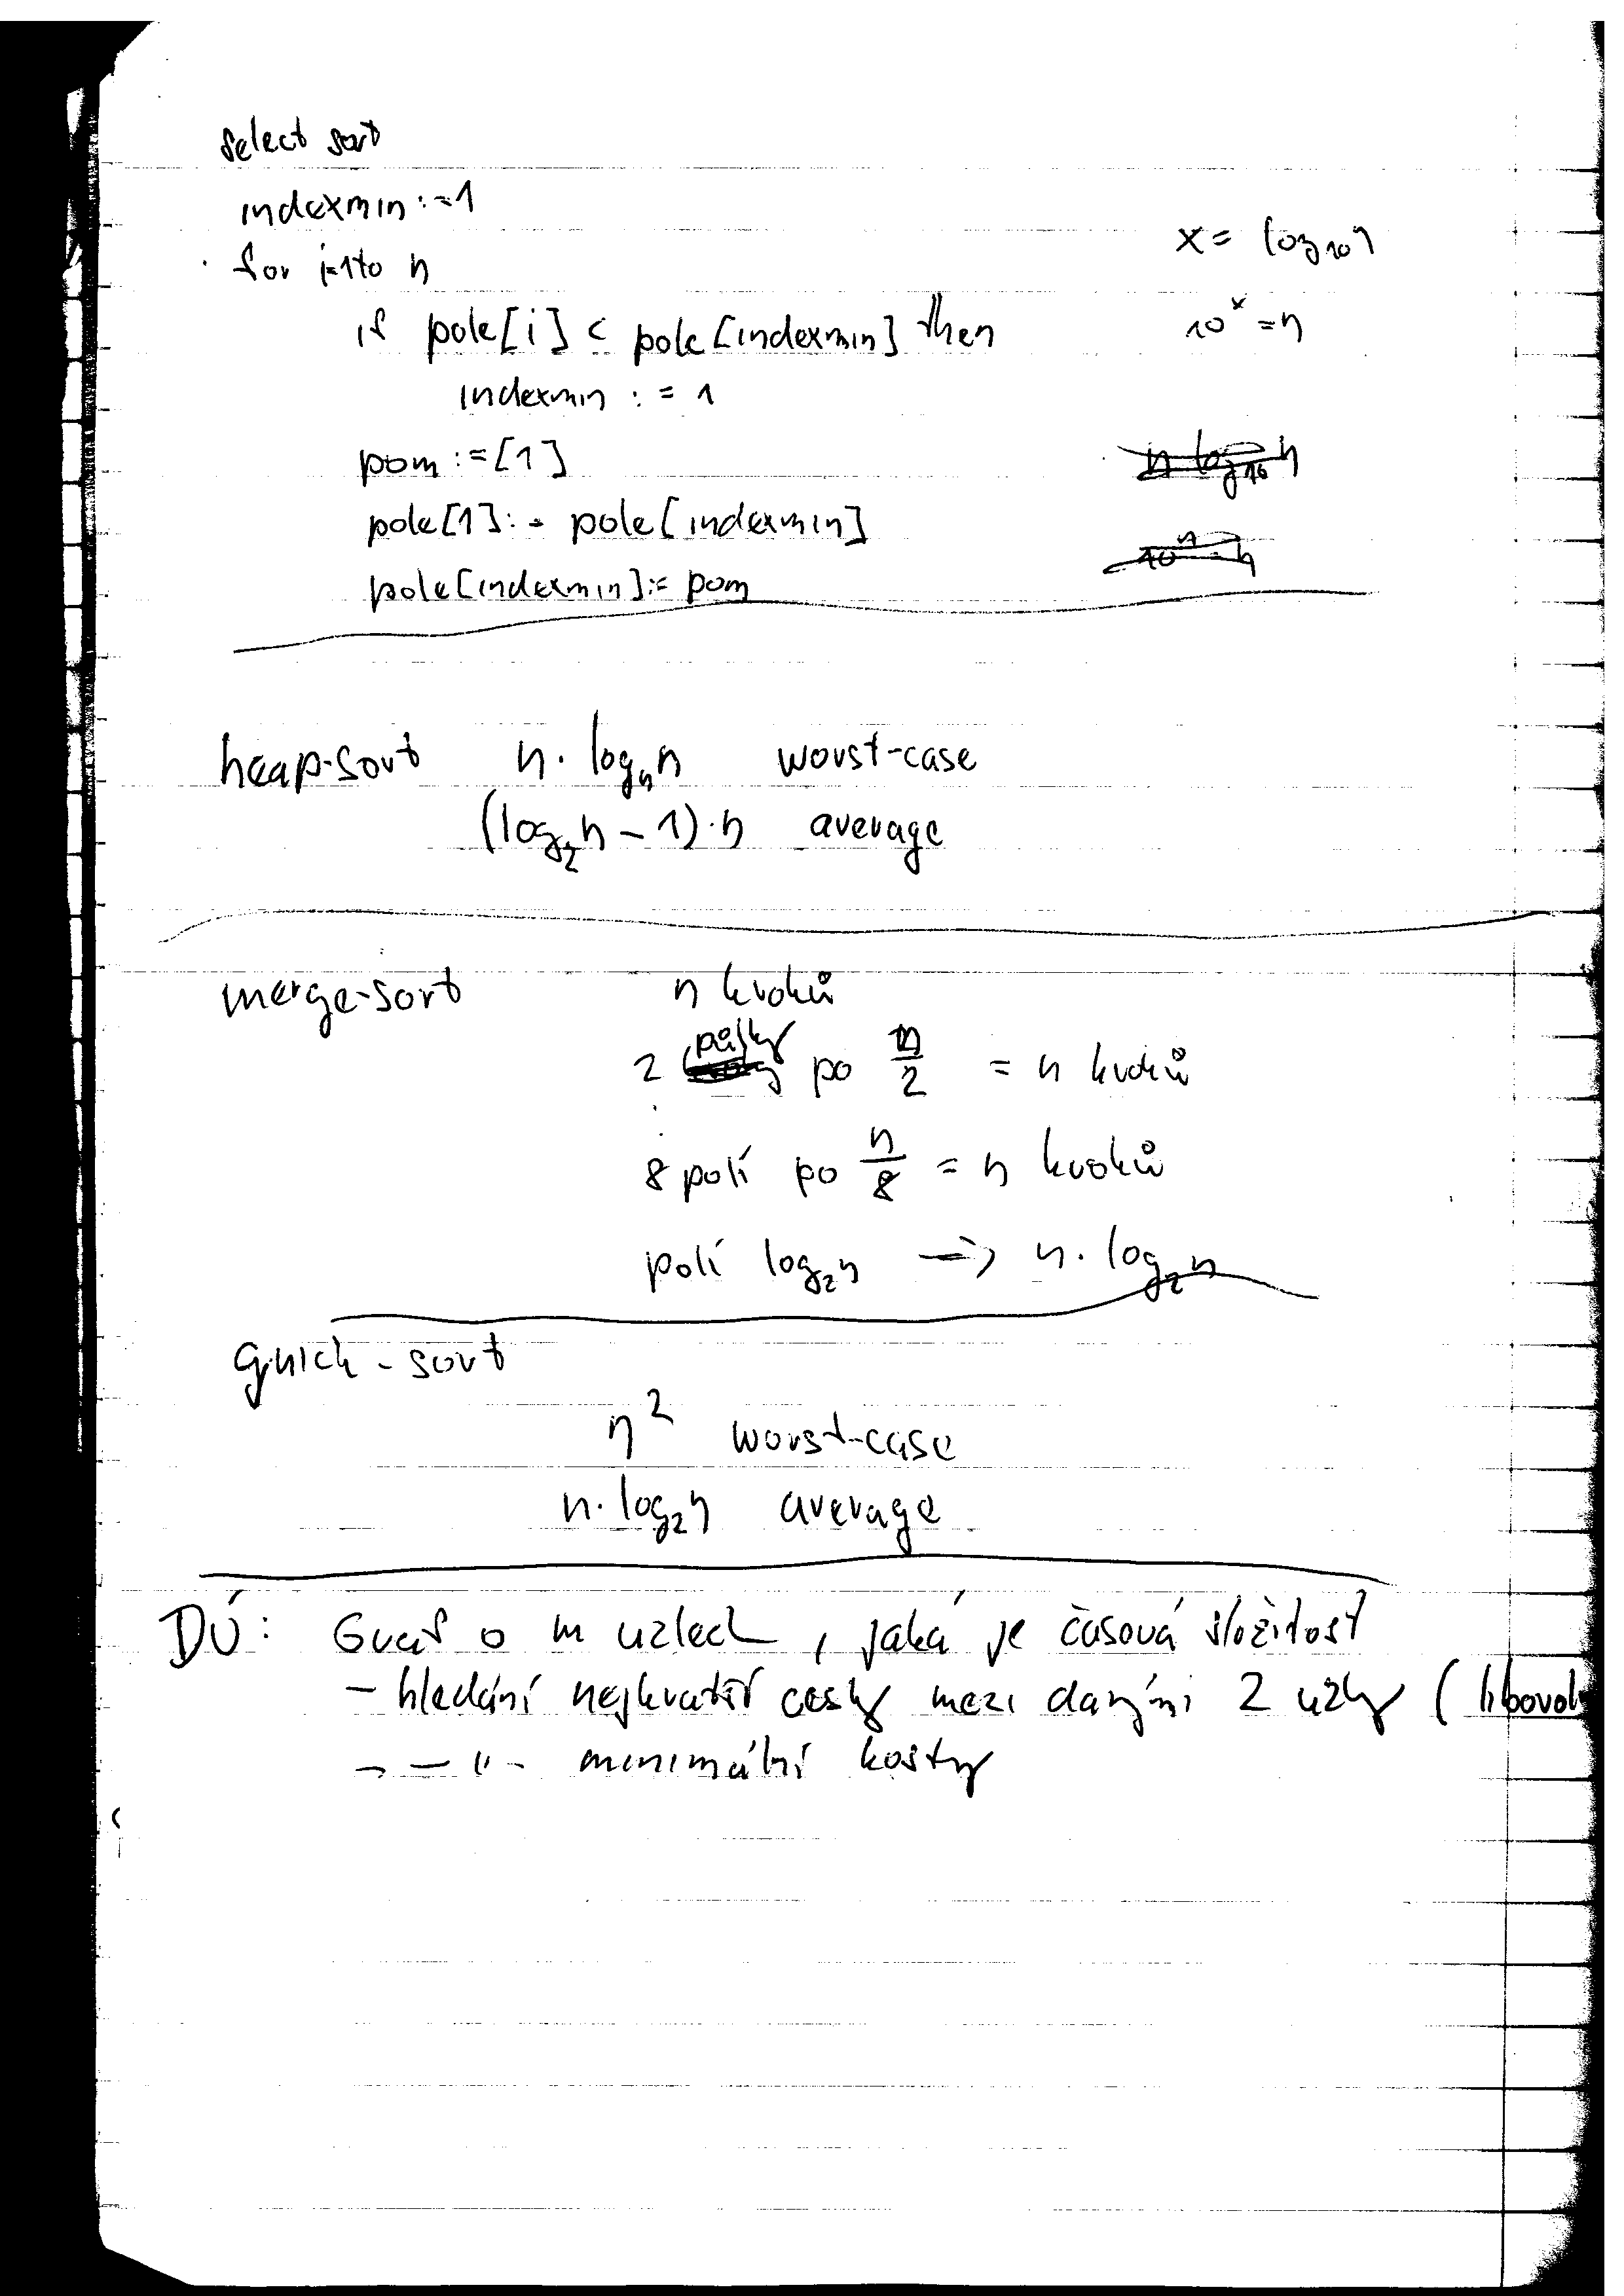 select sort
indexmin := 1
for i=1 to n
x = log₁₀ n
if pole[i] < pole[indexmin] then
10ˣ = n
indexmin := 1
pom := [1]
n log₁₀ n
pole[1] := pole[indexmin]
10ⁿ = n
pole[indexmin] := pom
heap-sort n · logₙ n worst-case
(log₂ n - 1) · n average
merge-sort n kroků
2 půlky po n/2 = n kroků
8 polí po n/8 = n kroků
polí log₂ n => n · log₂ n
quick-sort
n² worst-case
n · log₂ n average
DÚ: Graf o m uzlech, jaká je časová složitost
- hledání nejkratší cesty mezi danými 2 uzly (libovol
- — " - minimální kostry